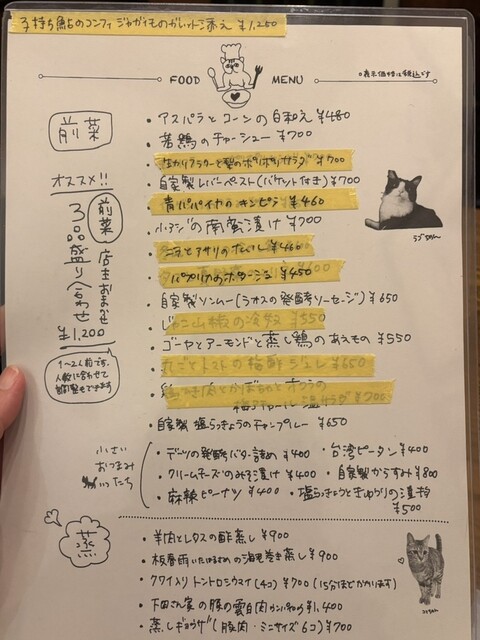 子持ち鮎のコンフィ ジャガイモのガレット添え ¥1,250
FOOD MENU
○表示価格は税込です
前菜
・アスパラとコーンの白和え ¥480
・若鶏のチャーシュー ¥700
・自家製レバーペースト(バケット付き) ¥700
・青パパイヤのキンピラ ¥460
・小アジの南蛮漬け ¥700
・パプリカのポタージュ ¥450
・自家製ソムー(ラオスの発酵ソーセージ) ¥650
・じゃこ山椒の冷奴 ¥550
・ゴーヤとアーモンドと蒸し鶏のあえもの ¥550
・丸ごとトマトの梅鮮ジュレ ¥650
・自家製 塩らっきょうのチャンプルー ¥650
オススメ!!
前菜
店主おまかせ
3品盛り合わせ
¥1,200
1〜2人前です。
人数に合わせて
調整もできます
小さい
おつまみ
・デーツの発酵バター詰め ¥400
・台湾ピータン ¥400
・クリームチーズのみそ漬け ¥400
・自家製からすみ ¥800
・麻辣ピーナツ ¥400
・塩らっきょうときゅうりの漬物 ¥500
蒸
・羊肉とレタスの酢蒸し ¥900
・クワイ入りトントロシウマイ(4コ) ¥700 (15分ほどかかります)
・蒸しギョウザ(豚肉・ミニサイズ6コ) ¥700